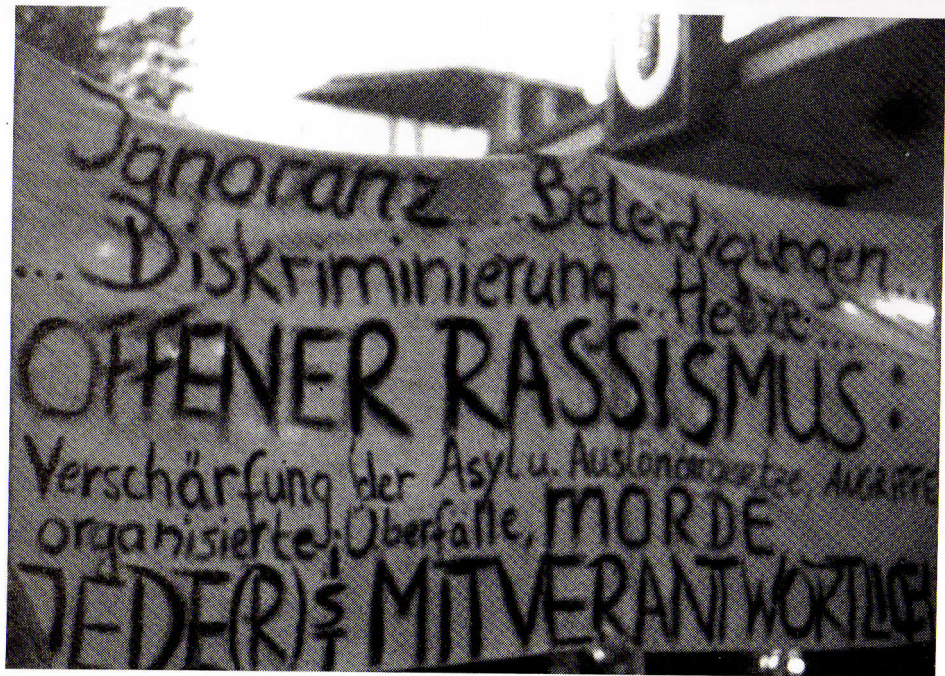 U
Ignoranz ... Beleidigungen ...
... Diskriminierung ... Hetze ...
OFFENER RASSISMUS:
Verschärfung der Asyl u. Ausländergesetze Angriffe
organisierte Überfälle, MORDE
JEDE(R) IST MITVERANTWORTLICH